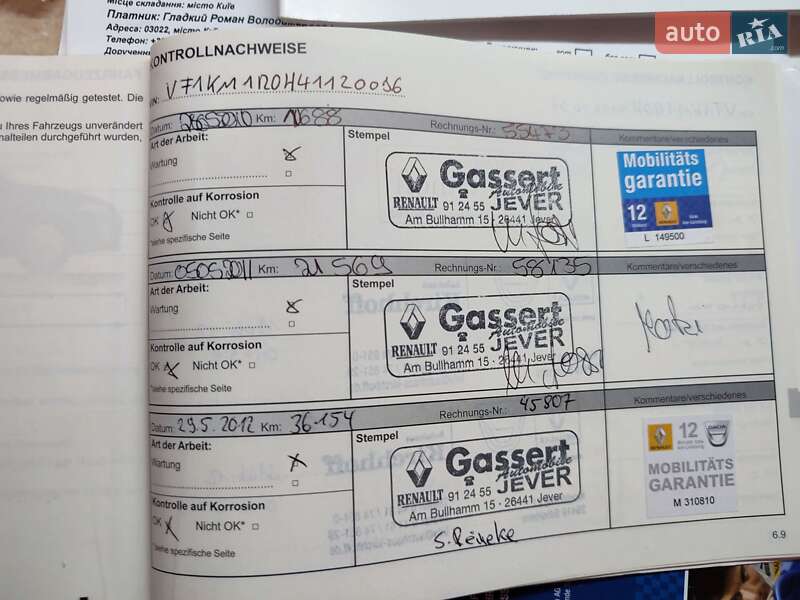 Місце складання: місто Київ
Платник: Гладкий Роман
Адреса: 03022, місто
Телефон:
auto RIA .com
KONTROLLNACHWEISE
owie regelmäßig getestet. Die
u Ihres Fahrzeugs unverändert
nalteilen durchgeführt wurden,
Datum: Km: Rechnungs-Nr.: 55473
Art der Arbeit:
Wartung
Kontrolle auf Korrosion
OK Nicht OK*
*siehe spezifische Seite
Stempel
RENAULT
Gassert
Automobile
JEVER
91 24 55
Am Bullhamm 15 · 26441 Jever
Kommentare/verschiedenes
Mobilitäts
garantie
12
L 149500
Datum: Km: 21 569 Rechnungs-Nr.: 58135
Art der Arbeit:
Wartung
Kontrolle auf Korrosion
OK Nicht OK*
*siehe spezifische Seite
Stempel
RENAULT
Gassert
Automobile
JEVER
91 24 55
Am Bullhamm 15 · 26441 Jever
Kommentare/verschiedenes
Datum: 29.5.2012 Km: 36 154 Rechnungs-Nr.: 45807
Art der Arbeit:
Wartung
Kontrolle auf Korrosion
OK Nicht OK*
*siehe spezifische Seite
Stempel
RENAULT
Gassert
Automobile
JEVER
91 24 55
Am Bullhamm 15 - 26441 Jever
Kommentare/verschiedenes
12
DACIA
MOBILITÄTS
GARANTIE
M 310810
6.9